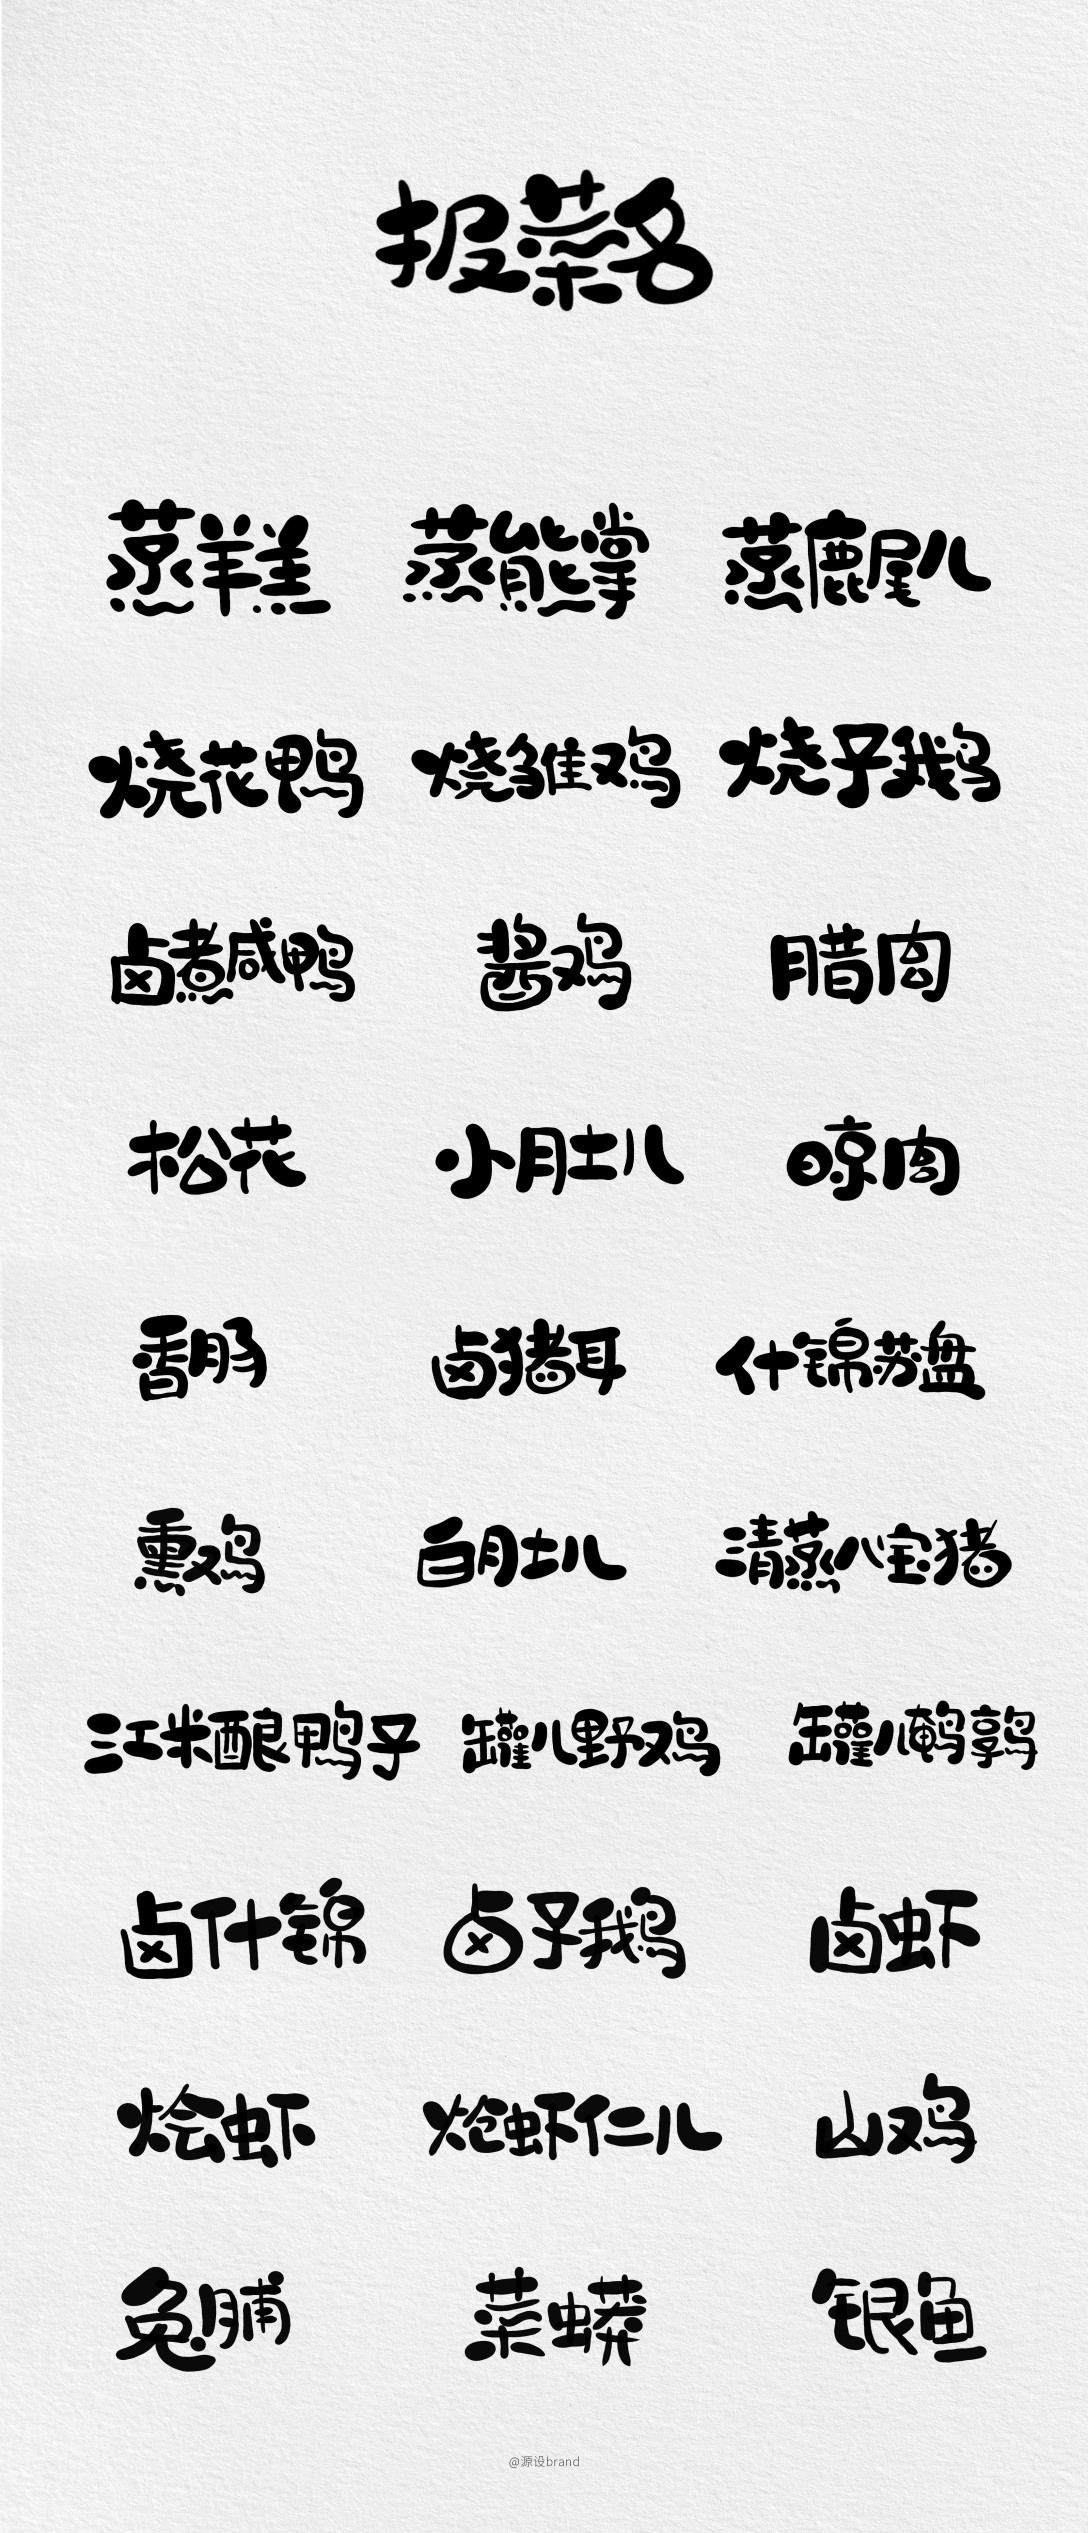 报菜名
蒸羊羔 蒸熊掌 蒸鹿尾儿
烧花鸭 烧雏鸡 烧子鹅
卤煮咸鸭 酱鸡 腊肉
松花 小肚儿 晾肉
香肠 卤猪耳 什锦苏盘
熏鸡 白肚儿 清蒸八宝猪
江米酿鸭子 罐儿野鸡 罐儿鹌鹑
卤什锦 卤子鹅 卤虾
烩虾 炝虾仁儿 山鸡
兔脯 菜蟒 银鱼
@源设brand